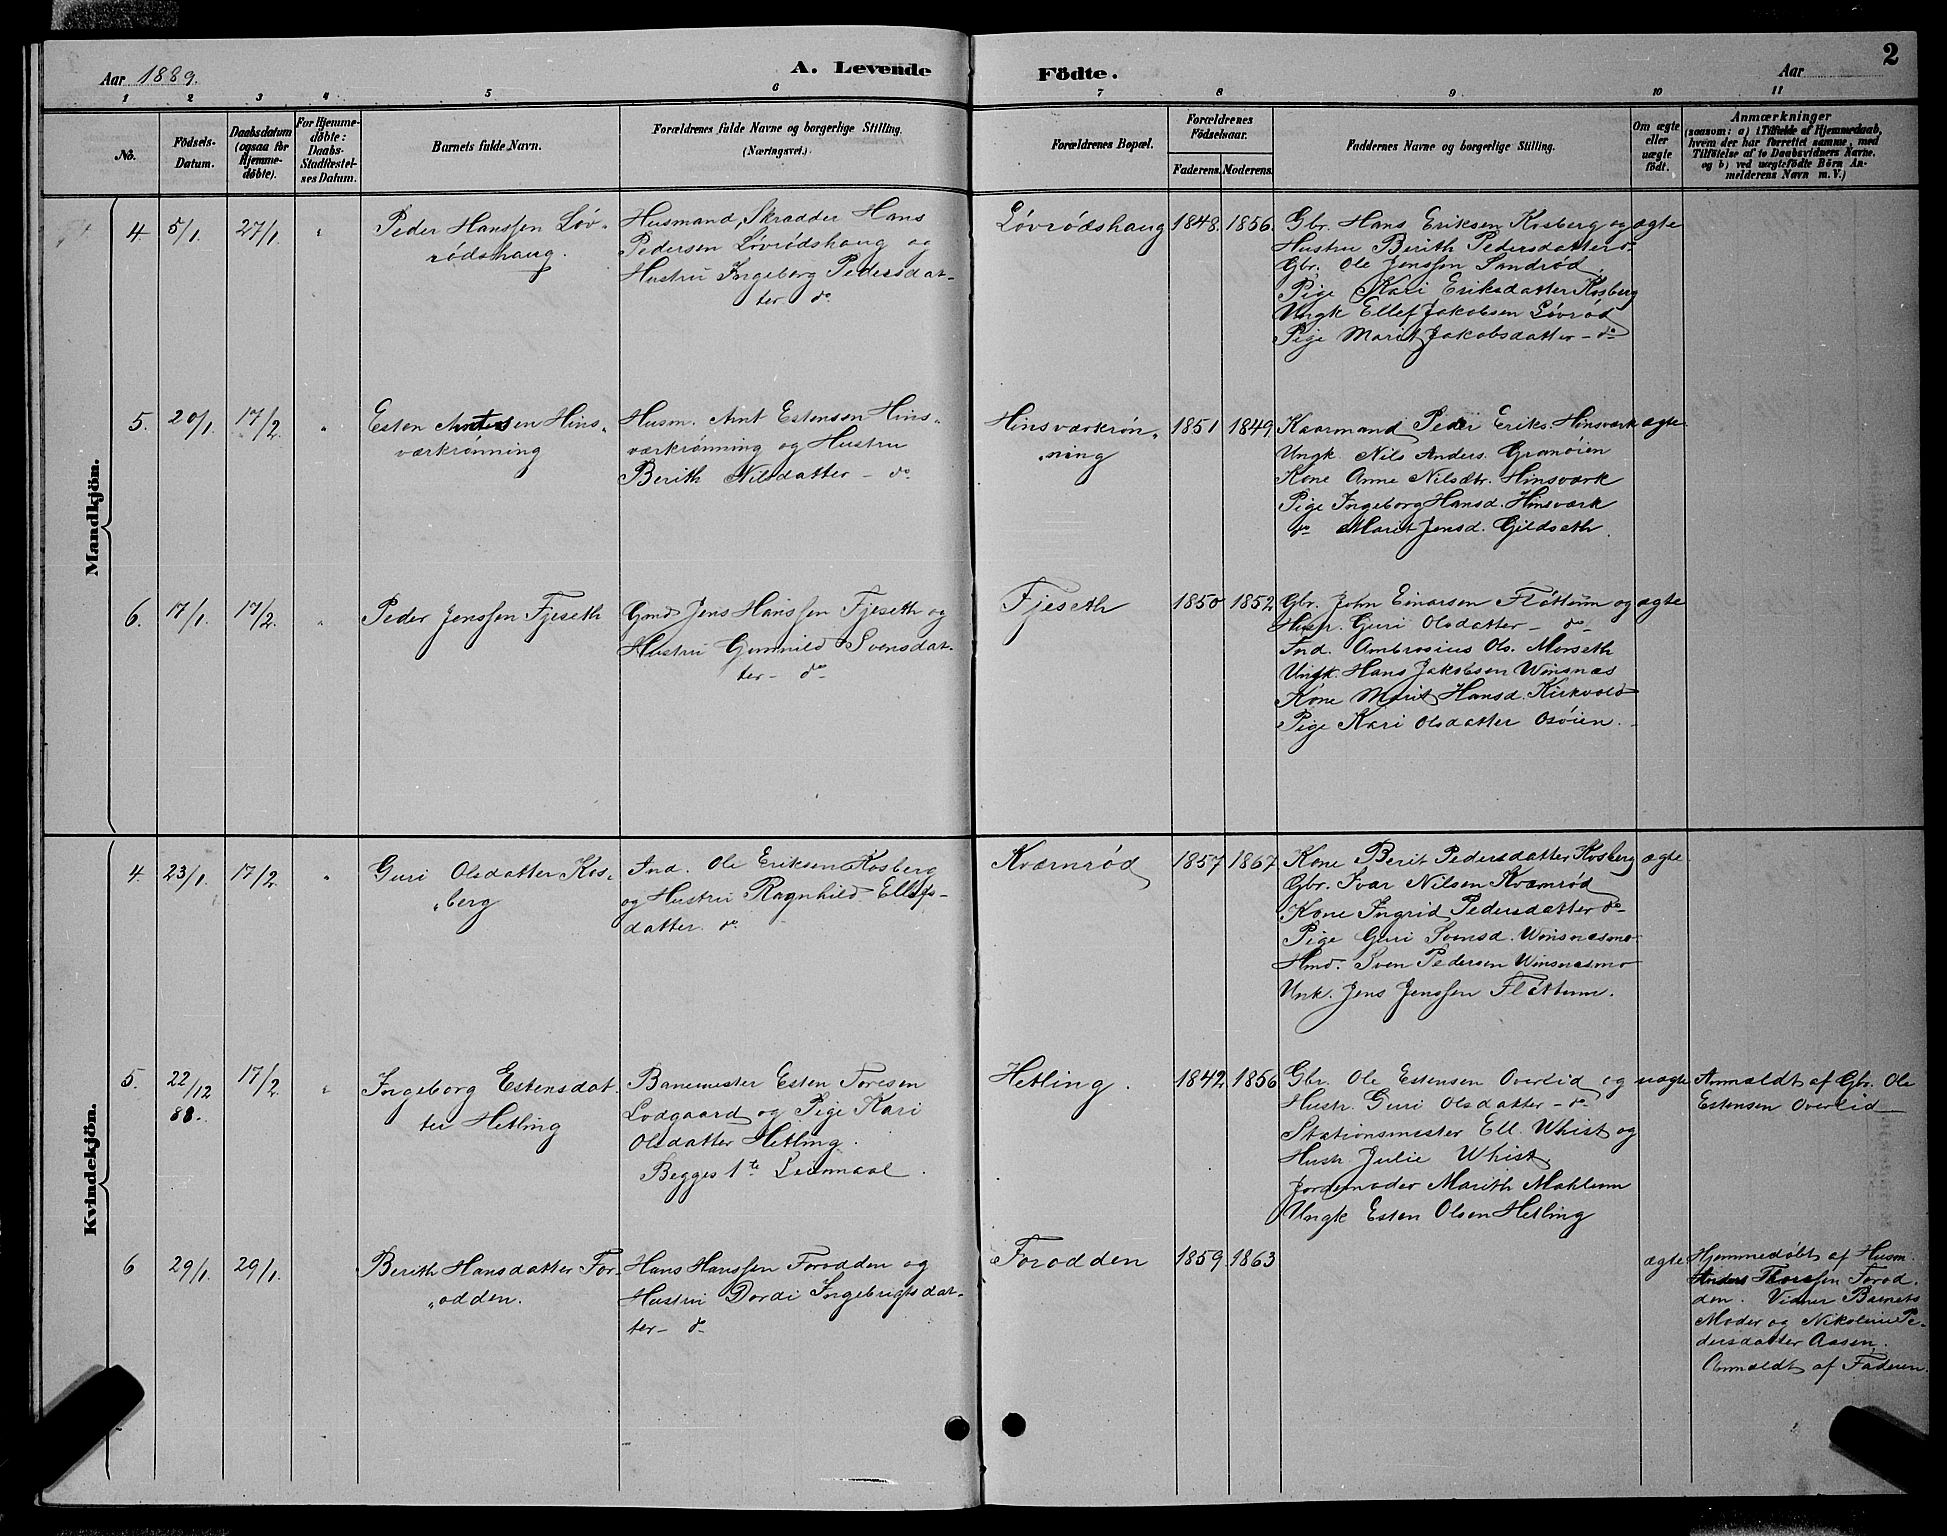 2
Aar 1889.
A. Levende Födte.
Aar
1 2 3 4 5 6 7 8 9 10 11
No.
Födsels-
Datum.
Daabsdatum
(ogsaa for
Hjemme-
døbte).
For Hjemme-
døbte:
Daabs-
Stadfæstel-
ses Datum.
Barnets fulde Navn.
Forældrenes fulde Navne og borgerlige Stilling.
(Næringsvei.)
Forældrenes Bopæl.
Forældrenes
Födselsaar.
Faderens. Moderens.
Faddernes Navne og borgerlige Stilling.
Om ægte
eller
uægte
födt.
Anmærkninger
(saasom: a) i Tilfælde af Hjemmedaab,
hvem der har forrettet samme, med
Tilföielse af to Daabsvidners Navne,
og b) ved uægtefödte Börn An-
melderens Navn m. V.)
Mandkjön.
4 5/1. 27/1. "
Peder Hanssen Löv-
rödshaug.
Husmand, Skrædder Hans
Pedersen Lövrödshaug og
Hustru Ingeborg Pedersdat-
ter do
Lövrödshaug
1848. 1856.
Gbr. Hans Eriksen Kosberg og
Hustru Berith Pedersdatter do
Gbr. Ole Jenssen Sandröd.
Pige Kari Eriksdatter Kosberg
Ungk Ellef Jakobsen Lövröd
Pige Marit Jakobsdatter - do
ægte
5. 20/1. 17/2. "
Esten Arntsen Hins-
værkrönning
Husm. Arnt Estensen Hins-
værkrönning og Hustru
Berith Nilsdatter - do
Hinsværkrön-
ning
1851 1849
Kaarmand Peder Eriks. Hinsværk
Ungk. Nils Anders. Granöien
Kone Anne Nilsdtr. Hinsværk
Pige Ingeborg Hansd. Hinsværk
do Marit Jensd. Gildseth.
ægte
6. 17/1. 17/2. "
Peder Jenssen Fjeseth
Gmd Jens Hanssen Fjeseth og
Hustru Gunnild Svensdat-
ter - do
Fjeseth
1850 1852
Gbr. John Einarsen Flöttum og
Hustr. Guri Olsdatter - do
Ind. Ambrosius Ols. Morseth
Ungk. Hans Jakobsen Winsnæs
Kone Marit Hansd. Kirkvold
Pige Kari Olsdatter Osöien.
ægte
Kvindekjön.
4. 23/1. 17/2. "
Guri Olsdatter Kos-
berg
Ind. Ole Eriksen Kosberg
og Hustru Ragnhild Ellefs-
datter do
Kværnröd
1857 1867
Kone Berit Pedersdatter Kosberg
Gbr. Ivar Nilsen Kværnröd
Kone Ingrid Pedersdatter do
Pige Guri Svensd. Winsnæsmo
Hmd. Sven Pedersen Winsnæsmo
Unk. Jens Jenssen Flöttum.
ægte
5. 22/12 88. 17/2. "
Ingeborg Estensdat-
ter Hetling
Banemester Esten Toresen
Lodgaard og Pige Kari
Olsdatter Hetling.
Begges 1te Leiermaal.
Hetling.
1842 1856
Gbr. Ole Estensen Overlid og
Hustr. Guri Olsdatter - do
Stationsmester Ell. Whist og
Hustr Julie Whist.
Jordemoder Marith Mahlum
Ungk Esten Olsen Hetling
uægte
Anmeldt af Gbr. Ole
Estensen Overlid
6 29/1. 29/1.
Berith Hansdatter For-
odden.
Hans Hanssen Forodden og
Hustru Dordi Ingebrigtsdat-
ter - do
Forodden
1859 1863
ægte
Hjemmedöbt af Husm.
Anders Thorssen Forod-
den. Vidner Barnets
Moder og Nikoline Pe-
dersdatter Aasen.
Anmeldt af Faderen.